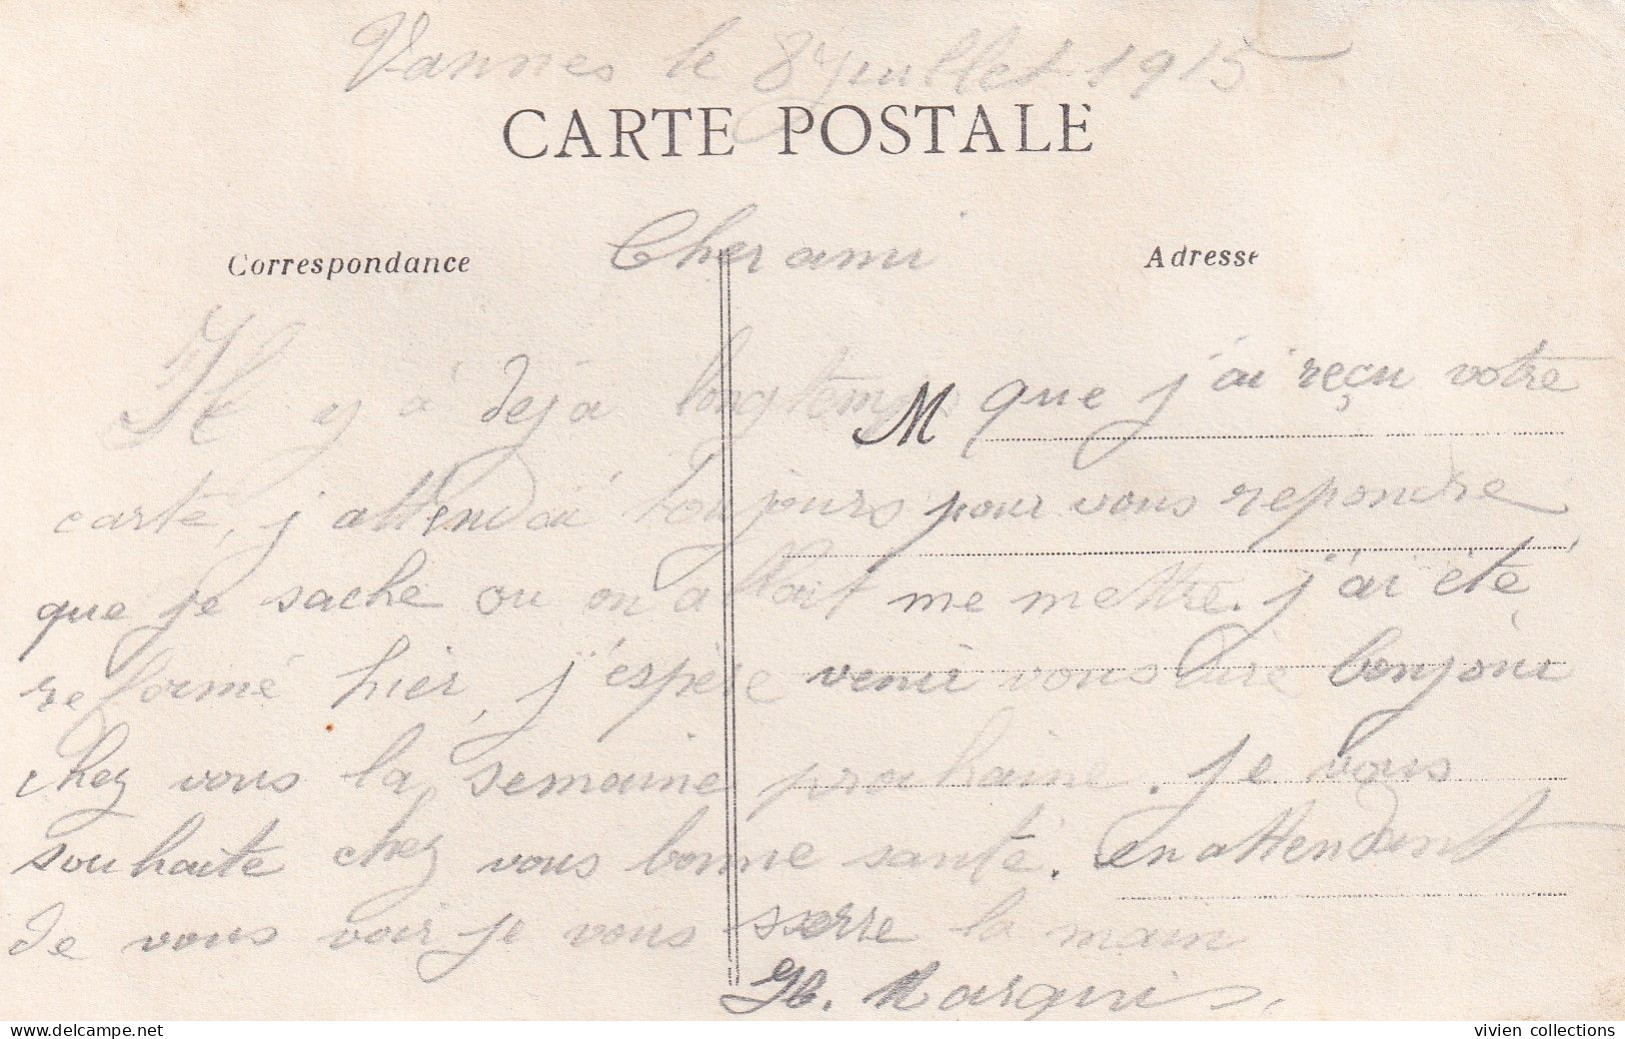 Vannes le 8 juillet 1915
CARTE POSTALE
Correspondance
Cher ami
Adresse
Il y à déjà longtemps M que j'ai reçu votre
carte, j attendai toujours pour vous repondre
que je sache ou on allait me mettre. j'ai été
reformé hier, j'espère venir vous dire bonjour
chez vous la semaine prochaine. Je vous
souhaite chez vous bonne santé. en attendant
de vous voir je vous sserre la main
Marquis
vivien collections